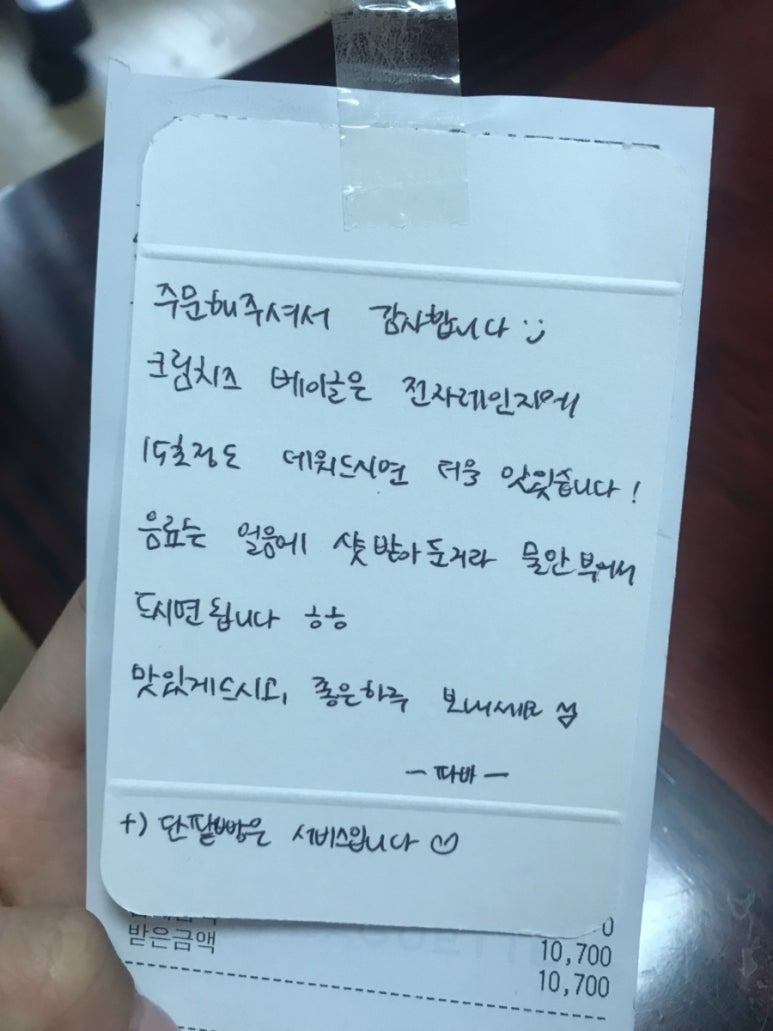 주문해주셔서 감사합니다 :)
크림치즈 베이글은 전자레인지에
15초정도 데워드시면 더욱 맛있습니다!
음료는 얼음에 샷 받아둔거라 물안부어서
드시면됩니다 ㅎㅎ
맛있게드시고, 좋은하루 보내세요
- 따바 -
+) 단팥빵은 서비스입니다 ♡
0
받은금액 10,700
10,700